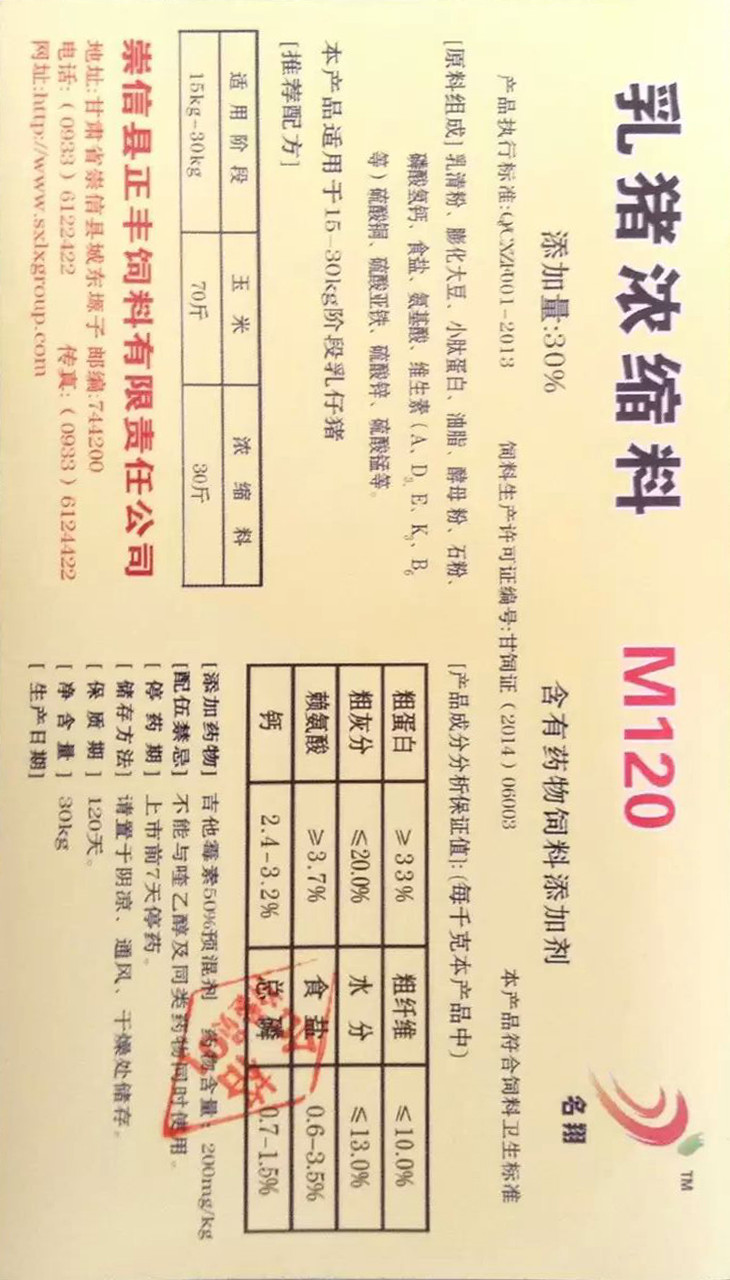 乳猪浓缩料 M120
TM
名翔
添加量:30% 含有药物饲料添加剂
产品执行标准:Q/CXZF001-2013 饲料生产许可证编号:甘饲证（2014）06003 本产品符合饲料卫生标准
[原料组成] 乳清粉、膨化大豆、小肽蛋白、油脂、酵母粉、石粉、
磷酸氢钙、食盐、氨基酸、维生素（A、D3、E、K3、B6
等）硫酸铜、硫酸亚铁、硫酸锌、硫酸锰等。
本产品适用于15-30kg阶段乳仔猪
[推荐配方]
适用阶段 玉米 浓缩料
15kg-30kg 70斤 30斤
崇信县正丰饲料有限责任公司
地址:甘肃省崇信县城东塬子 邮编:744200
电话:（0933）6122422 传真:（0933）6124422
网址:http://www.sxlxgroup.com
[产品成分分析保证值]:(每千克本产品中)
粗蛋白 ≥33% 粗纤维 ≤10.0%
粗灰分 ≤20.0% 水分 ≤13.0%
赖氨酸 ≥3.7% 食盐 0.6-3.5%
钙 2.4-3.2% 总磷 0.7-1.5%
[添加药物] 吉他霉素50%预混剂 药物含量：200mg/kg
[配伍禁忌] 不能与喹乙醇及同类药物同时使用。
[停药期] 上市前7天停药。
[储存方法] 请置于阴凉、通风、干燥处储存。
[保质期] 120天。
[净含量] 30kg
[生产日期]